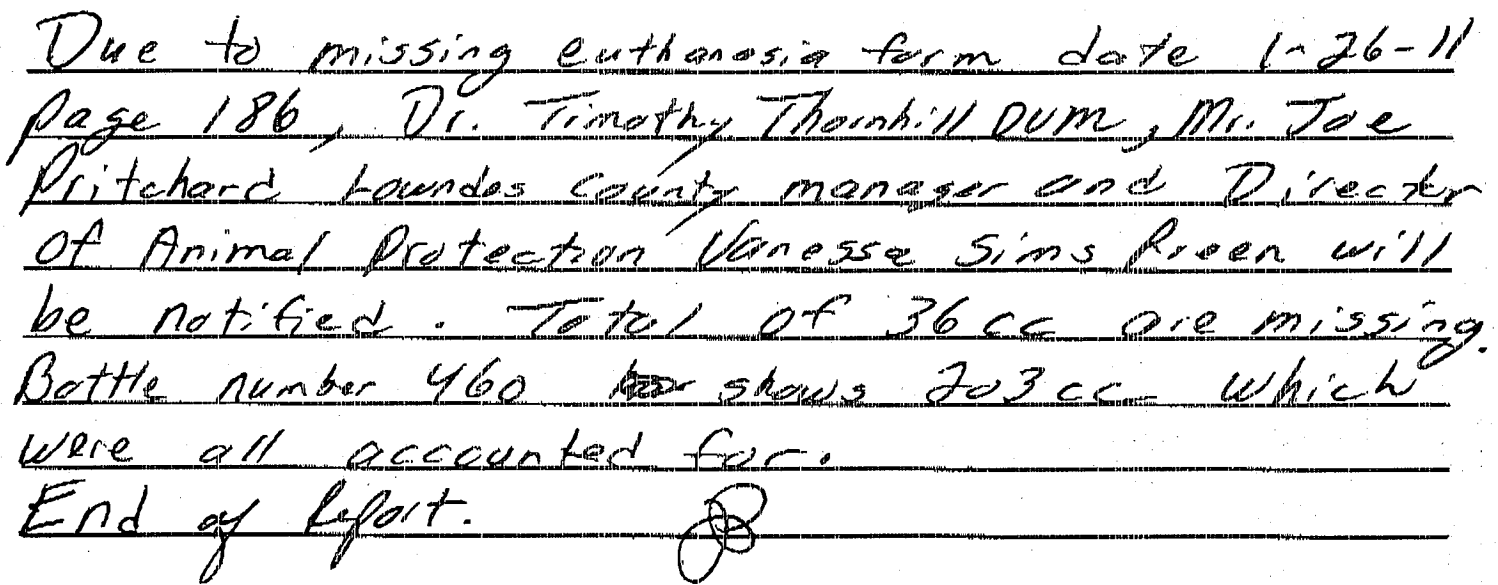 Due to missing euthanasia form date 1-26-11
page 186, Dr. Timothy Thornhill DVM, Mr. Joe
Pritchard Lowndes County manager and Director
of Animal Protection Vanessa Sims Green will
be notified. Total of 36cc are missing.
Bottle number 460 shows 203cc which
were all accounted for.
End of Report.